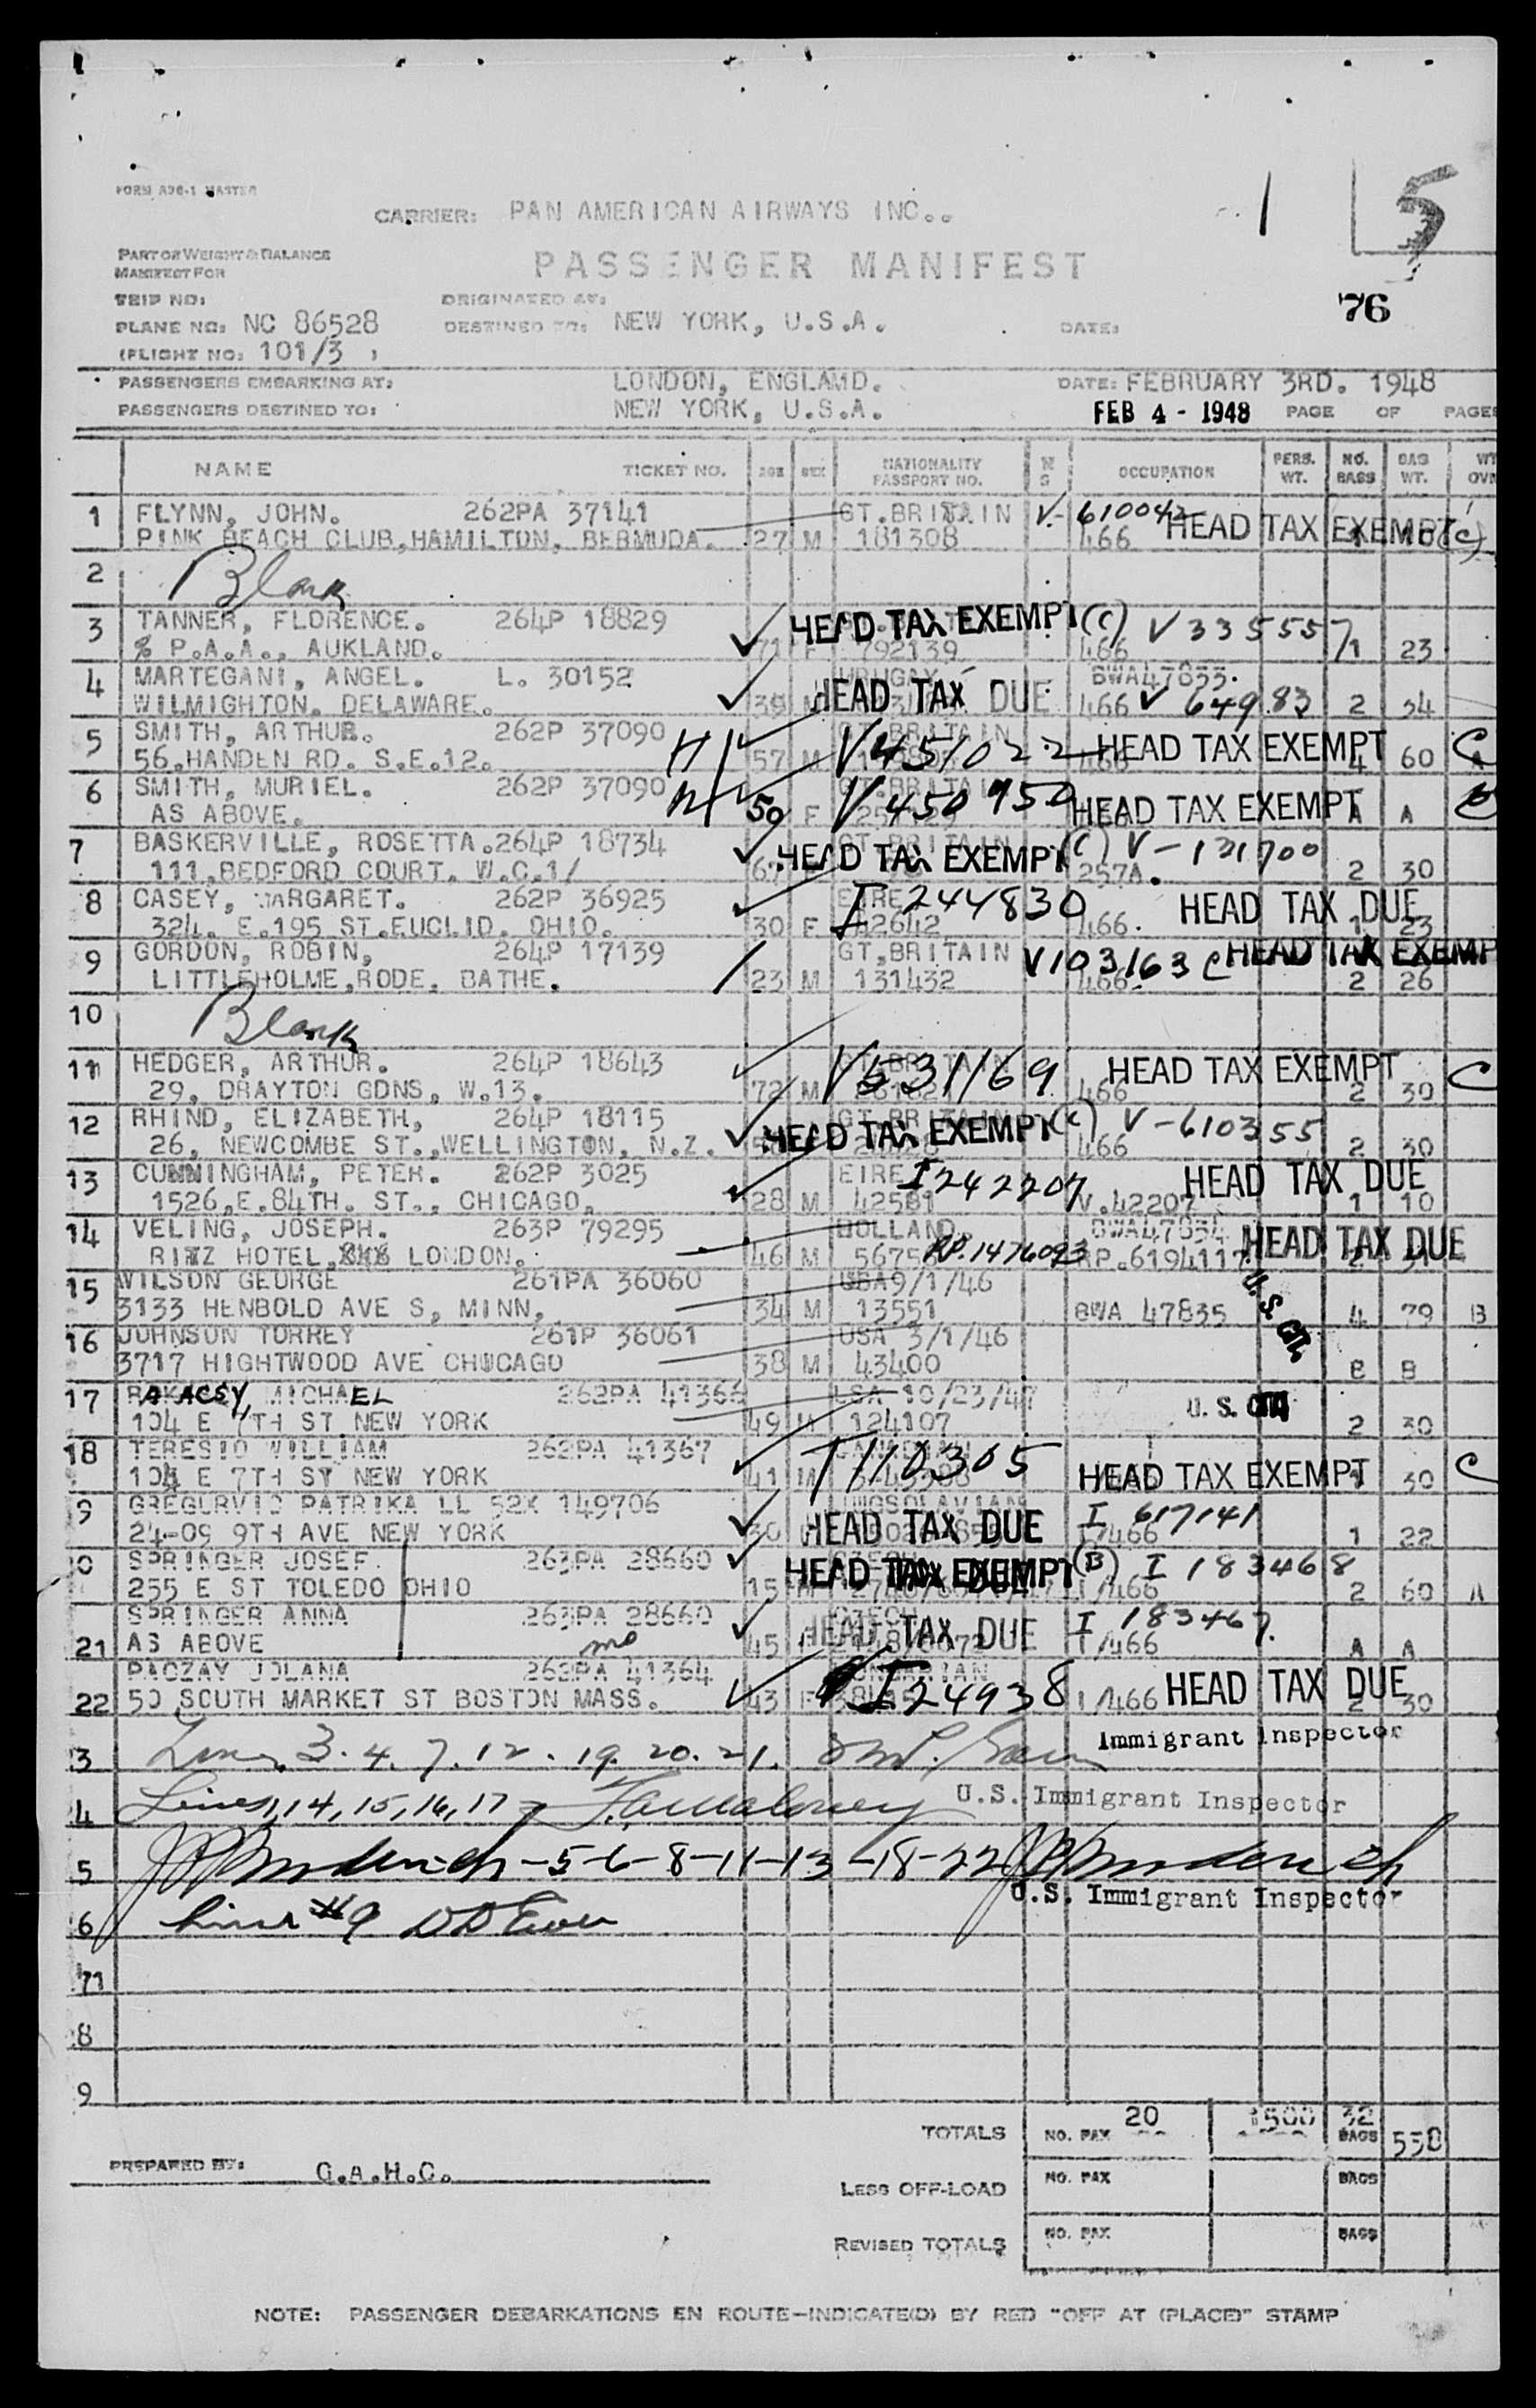 FORM A96-1 MASTER
CARRIER: PAN AMERICAN AIRWAYS INC..
1 5
PART OF WEIGHT & BALANCE
MANIFEST FOR
PASSENGER MANIFEST
76
TRIP NO:
ORIGINATED AT:
PLANE NO: NC 86528 DESTINED TO: NEW YORK, U.S.A. DATE:
(FLIGHT NO: 101/3 )
PASSENGERS EMBARKING AT: LONDON, ENGLAMD. DATE: FEBRUARY 3RD. 1948
PASSENGERS DESTINED TO: NEW YORK, U.S.A. FEB 4 - 1948 PAGE OF PAGES
NAME TICKET NO. AGE SEX NATIONALITY PASSPORT NO. OCCUPATION PERS. WT. NO. BAGS BAG WT.
1 FLYNN, JOHN. 262PA 37141 GT.BRITAIN V- 610042 HEAD TAX EXEMPT (C)
PINK BEACH CLUB,HAMILTON, BERMUDA. 27 M 181308 466
2 Blank
3 TANNER, FLORENCE. 264P 18829 HEAD TAX EXEMPT (C) V335557
% P.A.A., AUKLAND. 71 F 792139 466 1 23
4 MARTEGANI, ANGEL. L. 30152 URUGAY HEAD TAX DUE BWA47833.
WILMIGHTON. DELAWARE. 39 M 466 V 64983 2 34
5 SMITH, ARTHUR. 262P 37090 GT.BRITAIN V451022 HEAD TAX EXEMPT C
56,HANDEN RD. S.E.12. 57 M 466 4 60 A
6 SMITH, MURIEL. 262P 37090 GT.BRITAIN V450950 HEAD TAX EXEMPT
AS ABOVE. 50 F A A
7 BASKERVILLE, ROSETTA.264P 18734 HEAD TAX EXEMPT (C) V-131700
111,BEDFORD COURT. W.C.1/ 67 257A. 2 30
8 CASEY, MARGARET. 262P 36925 EIRE I 244830 HEAD TAX DUE
324. E.195 ST.EUCLID. OHIO. 30 F 42642 466. 1 23
9 GORDON, ROBIN, 264P 17139 GT,BRITAIN V103163 C HEAD TAX EXEMP
LITTLEHOLME,RODE. BATHE. 23 M 131432 466. 2 26
10 Blank
11 HEDGER, ARTHUR. 264P 18643 V531169 HEAD TAX EXEMPT C
29, DRAYTON GDNS, W.13. 72 M 466 2 30
12 RHIND, ELIZABETH, 264P 18115 GT.BRITAIN HEAD TAX EXEMPT (C) V-610355
26, NEWCOMBE ST.,WELLINGTON, N.Z. 466 2 30
13 CUNNINGHAM, PETER. 262P 3025 EIRE I242207 HEAD TAX DUE
1526,E.84TH. ST., CHICAGO. 28 M 42581 V.42207 1 10
14 VELING, JOSEPH. 263P 79295 HOLLAND. BWA47834 HEAD TAX DUE
RITZ HOTEL, LONDON. 46 M 56756 RP.1476093 RP.6194117
15 WILSON GEORGE 261PA 36060 USA9/1/46 U.S. CIT.
3133 HENBOLD AVE S, MINN, 34 M 13551 BWA 47835 4 79 B
16 JOHNSON TORREY 261P 36061 USA 3/1/46
3717 HIGHTWOOD AVE CHUCAGO 38 M 43400 B B
17 MICHAEL 262PA 41366 USA 10/23/47 U.S. CIT
104 E 7TH ST NEW YORK 49 M 124107 2 30
18 TERESIO WILLIAM 262PA 41367 T110305 HEAD TAX EXEMPT C
104 E 7TH ST NEW YORK 41 M 30
9 GREGURVIC PATRIKA LL 52X 149706 HEAD TAX DUE I 617141
24-09 9TH AVE NEW YORK 30 I/466 1 22
0 SPRINGER JOSEF 263PA 28660 HEAD TAX EXEMPT (B) I 183468
255 E ST TOLEDO OHIO 15 I/466 2 60 A
SPRINGER ANNA 263PA 28660 CZECH HEAD TAX DUE I 183467.
21 AS ABOVE mo 45 F I/466 A A
PACZAY JOLANA 262PA 41364 HUNGARIAN I 24938 HEAD TAX DUE
22 50 SOUTH MARKET ST BOSTON MASS. 43 F I/466 2 30
3 Lines 3. 4. 7. 12. 19. 20. 21. Immigrant Inspector
4 Lines 1, 14, 15, 16, 17 F.A. Maloney U.S. Immigrant Inspector
5 -5-6-8-11-13-18-22
U.S. Immigrant Inspector
6 Line #9
71
8
9
TOTALS NO. PAX 20 1500 32 BAGS 550
PREPARED BY: G.A.H.C.
LESS OFF-LOAD NO. PAX BAGS
REVISED TOTALS NO. PAX BAGS
NOTE: PASSENGER DEBARKATIONS EN ROUTE—INDICATE(D) BY RED "OFF AT (PLACE)" STAMP